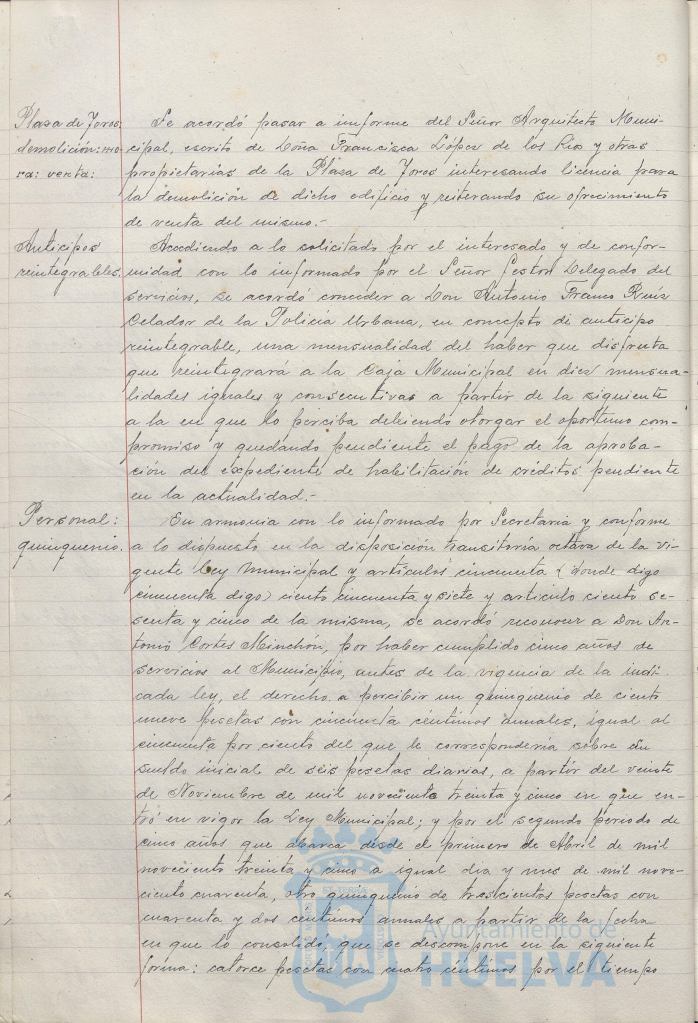 Plaza de Toros:
demolición: mo-
ra: venta:
Se acordó pasar a informe del Señor Arquitecto Muni-
cipal, escrito de Doña Francisca López de los Rio y otras
propietarias de la Plaza de Toros interesando licencia para
la demolición de dicho edificio y reiterando su ofrecimiento
de venta del mismo.-
Anticipos
reintegrables.
Accediendo a lo solicitado por el interesado y de confor-
midad con lo informado por el Señor Gestor Delegado del
servicios, se acordó conceder a Don Antonio Franco Ruíz
Celador de la Policía Urbana, en concepto de anticipo
reintegrable, una mensualidad del haber que disfruta
que reintegrará a la Caja Municipal en diez mensua-
lidades iguales y consecutivas a partir de la siguiente
a la en que lo perciba debiendo otorgar el oportuno com-
promiso y quedando pendiente el pago de la aproba-
ción del expediente de habilitación de créditos pendiente
en la actualidad.-
Personal:
quinquenio.
En armonia con lo informado por Secretaria y conforme
a lo dispuesto en la disposición transitoria octava de la vi-
gente Ley Municipal y artículos cincuenta (donde digo
cincuenta digo) ciento cincuenta y siete y artículo ciento se-
senta y cinco de la misma, se acordó reconocer a Don An-
tonio Cortes Minchón, por haber cumplido cinco años de
servicios al Municipio, antes de la vigencia de la indi-
cada ley, el derecho a percibir un quinquenio de ciento
nueve pesetas con cincuenta céntimos anuales, igual al
cincuenta por ciento del que le correspondería sobre su
sueldo inicial de seis pesetas diarias, a partir del veinte
de Noviembre de mil novecientos treinta y cinco en que en-
tró en vigor la Ley Municipal; y por el segundo periodo de
cinco años que abarca desde el primero de Abril de mil
noveciento treinta y cinco a igual dia y mes de mil nove-
ciento cuarenta, otro quinquenio de trescientas pesetas con
cuarenta y dos céntimos anuales a partir de la fecha
en que lo consolidó, que se descompone en la siguiente
forma: catorce pesetas con cuatro céntimos por el tiempo
Ayuntamiento de
HUELVA